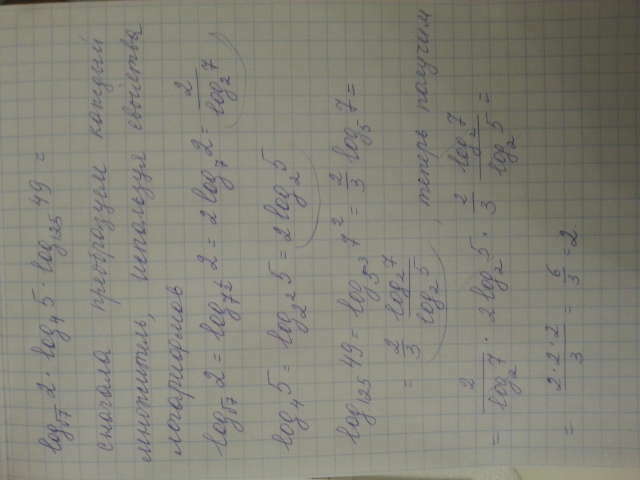 log√7 2 · log4 5 · log125 49 =
сначала преобразуем каждый
множитель, используя свойства
логарифмов
log√7 2 = log7^½ 2 = 2 log7 2 = 2/log2 7
log4 5 = log2² 5 = 2 log2 5
log125 49 = log5³ 7² = 2/3 log5 7 =
= 2/3 log2 7/log2 5 , теперь получим
= 2/log2 7 · 2 log2 5 · 2/3 log2 7/log2 5 =
= 2·2·2/3 = 6/3 = 2